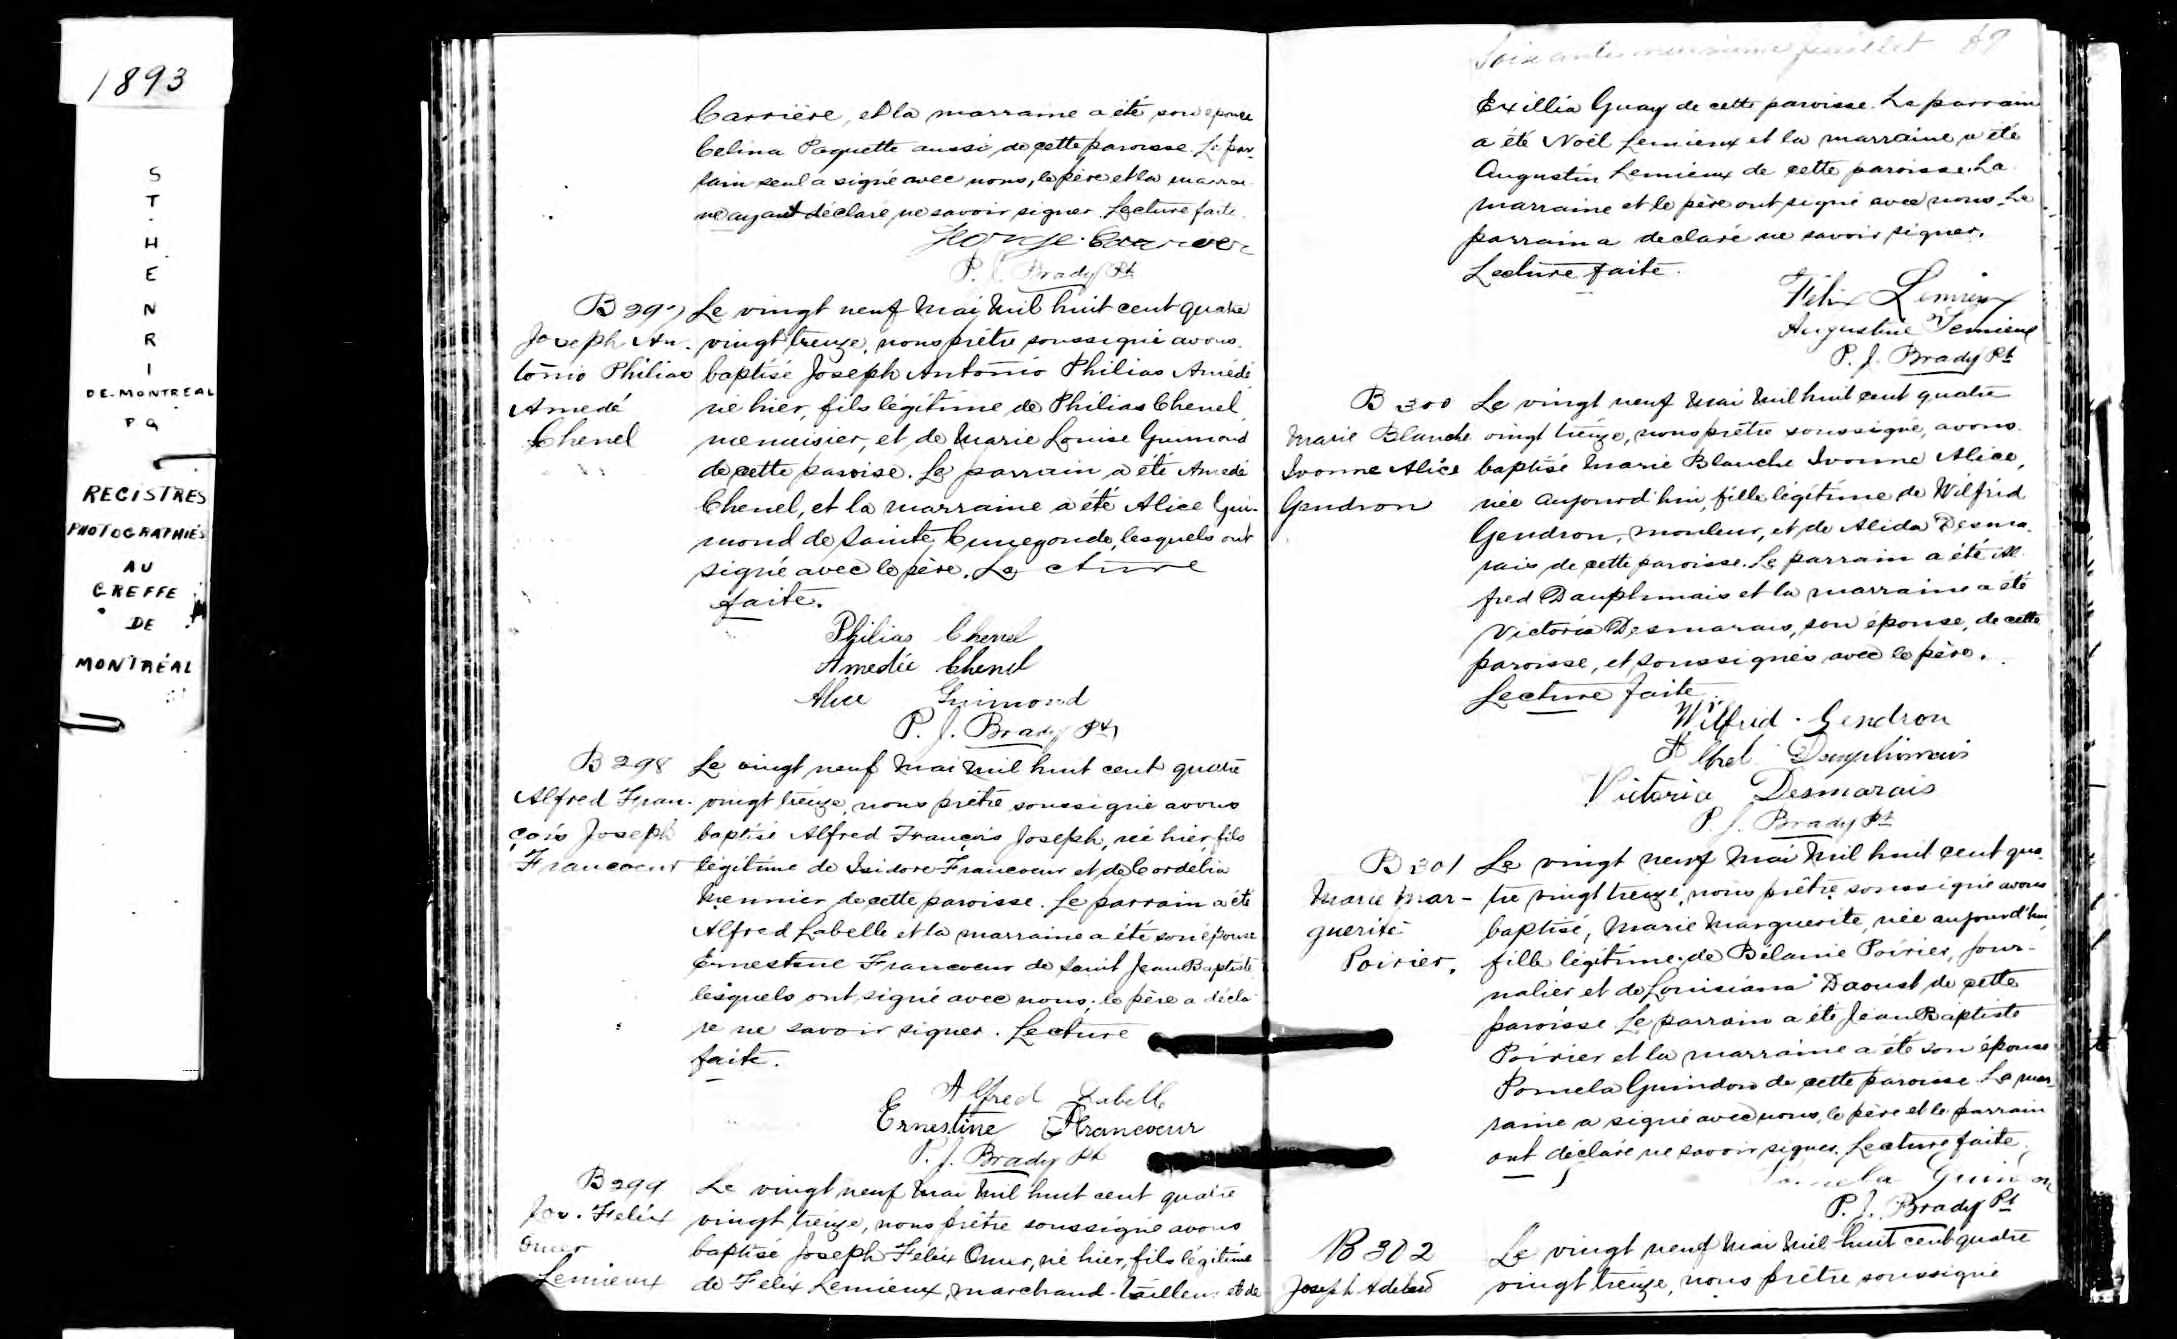 1893
ST. HENRI
DE-MONTREAL
P Q
REGISTRES
PHOTOGRAPHIÉS
AU
GREFFE
DE
MONTRÉAL
Carrière, et la marraine a été son épouse
Celina Paquette aussi de cette paroisse. Le par-
rain seul a signé avec nous, le père et la marrai-
ne ayant déclaré ne savoir signer. Lecture faite.
George Carrier
P. J. Brady Pt
B 297
Joseph An-
tonio Philias
Amedé
Chenel
Le vingt neuf Mai Mil huit cent quatre
vingt treize, nous prêtre soussigné avons
baptisé Joseph Antonio Philias Amédé
né hier, fils légitime de Philias Chenel
menuisier, et de Marie Louise Guimond
de cette paroise. Le parrain a été Amédé
Chenel, et la marraine a été Alice Gui-
mond de Sainte Cunegonde, lesquels ont
signé avec le père. Lecture
faite.
Philias Chenel
Amedée Chenel
Alice Guimond
P. J. Brady Pt
B 298
Alfred Fran-
çois Joseph
Francoeur
Le vingt neuf Mai Mil huit cent quatre
vingt treize, nous prêtre soussigné avons
baptisé Alfred François Joseph, né hier, fils
légitime de Isidore Francoeur et de Cordelia
Meunier de cette paroisse. Le parrain a été
Alfred Labelle et la marraine a été son épouse
Ernestine Francoeur de Saint Jean Baptiste
lesquels ont signé avec nous, le père a décla-
ré ne savoir signer. Lecture
faite.
Alfred Labelle
Ernestine Francoeur
P. J. Brady Pt
B 299
Jos. Felix
Omer
Lemieux
Le vingt neuf Mai Mil huit cent quatre
vingt treize, nous prêtre soussigné avons
baptisé Joseph Félix Omer, né hier, fils légitime
de Felix Lemieux, marchand-tailleur et de
Soixante neuvième feuillet 69
Exillia Guay de cette paroisse. Le parrain
a été Noël Lemieux et la marraine a été
Augustin Lemieux de cette paroisse. La
marraine et le père ont signé avec nous. Le
parrain a declaré ne savoir signer.
Lecture faite.
Félix Lemieux
Augustine Lemieux
P. J. Brady Pt
B 300
Marie Blanche
Ivonne Alice
Gendron
Le vingt neuf Mai Mil huit cent quatre
vingt treize, nous prêtre soussigné, avons
baptisé Marie Blanche Ivonne Alice,
née aujourd'hui, fille légitime de Wilfrid
Gendron, mouleur, et de Alida Desma-
rais de cette paroisse. Le parrain a été Al-
fred Dauphinais et la marraine a été
Victoria Desmarais, son épouse, de cette
paroisse, et soussignés avec le père.
Lecture faite.
Wilfrid Gendron
Alfred Dauphinais
Victoria Desmarais
P. J. Brady Pt
B 301
Marie Mar-
guerite
Poirier.
Le vingt neuf Mai Mil huit cent qua-
tre vingt treize, nous prêtre soussigné avons
baptisé, Marie Marguerite, née aujourd'hui,
fille légitime de Bélanie Poirier, jour-
nalier et de Louisiana Daoust de cette
paroisse. Le parrain a été Jean Baptiste
Poirier et la marraine a été son épouse
Pomela Guindon de cette paroisse. La mar-
raine a signé avec nous, le père et le parrain
ont déclaré ne savoir signer. Lecture faite.
Guindon
P. J. Brady Pt
B 302
Joseph Adelard
Le vingt neuf Mai Mil huit cent quatre
vingt treize, nous prêtre soussigné